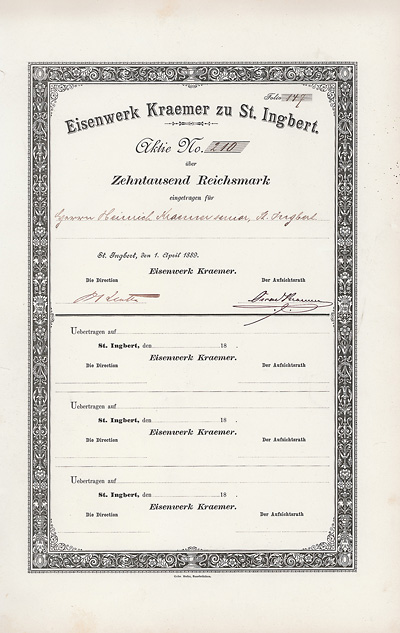 Folio 149
Eisenwerk Kraemer zu St. Ingbert.
Aktie No. 210
über
Zehntausend Reichsmark
eingetragen für
Herrn Heinrich Kraemer senior, St. Ingbert
St. Ingbert, den 1. April 1889.
Eisenwerk Kraemer.
Die Direction Der Aufsichtsrath
Oscar Kraemer
Uebertragen auf
St. Ingbert, den 18 .
Eisenwerk Kraemer.
Die Direction Der Aufsichtsrath
Uebertragen auf
St. Ingbert, den 18 .
Eisenwerk Kraemer.
Die Direction Der Aufsichtsrath
Uebertragen auf
St. Ingbert, den 18 .
Eisenwerk Kraemer.
Die Direction Der Aufsichtsrath